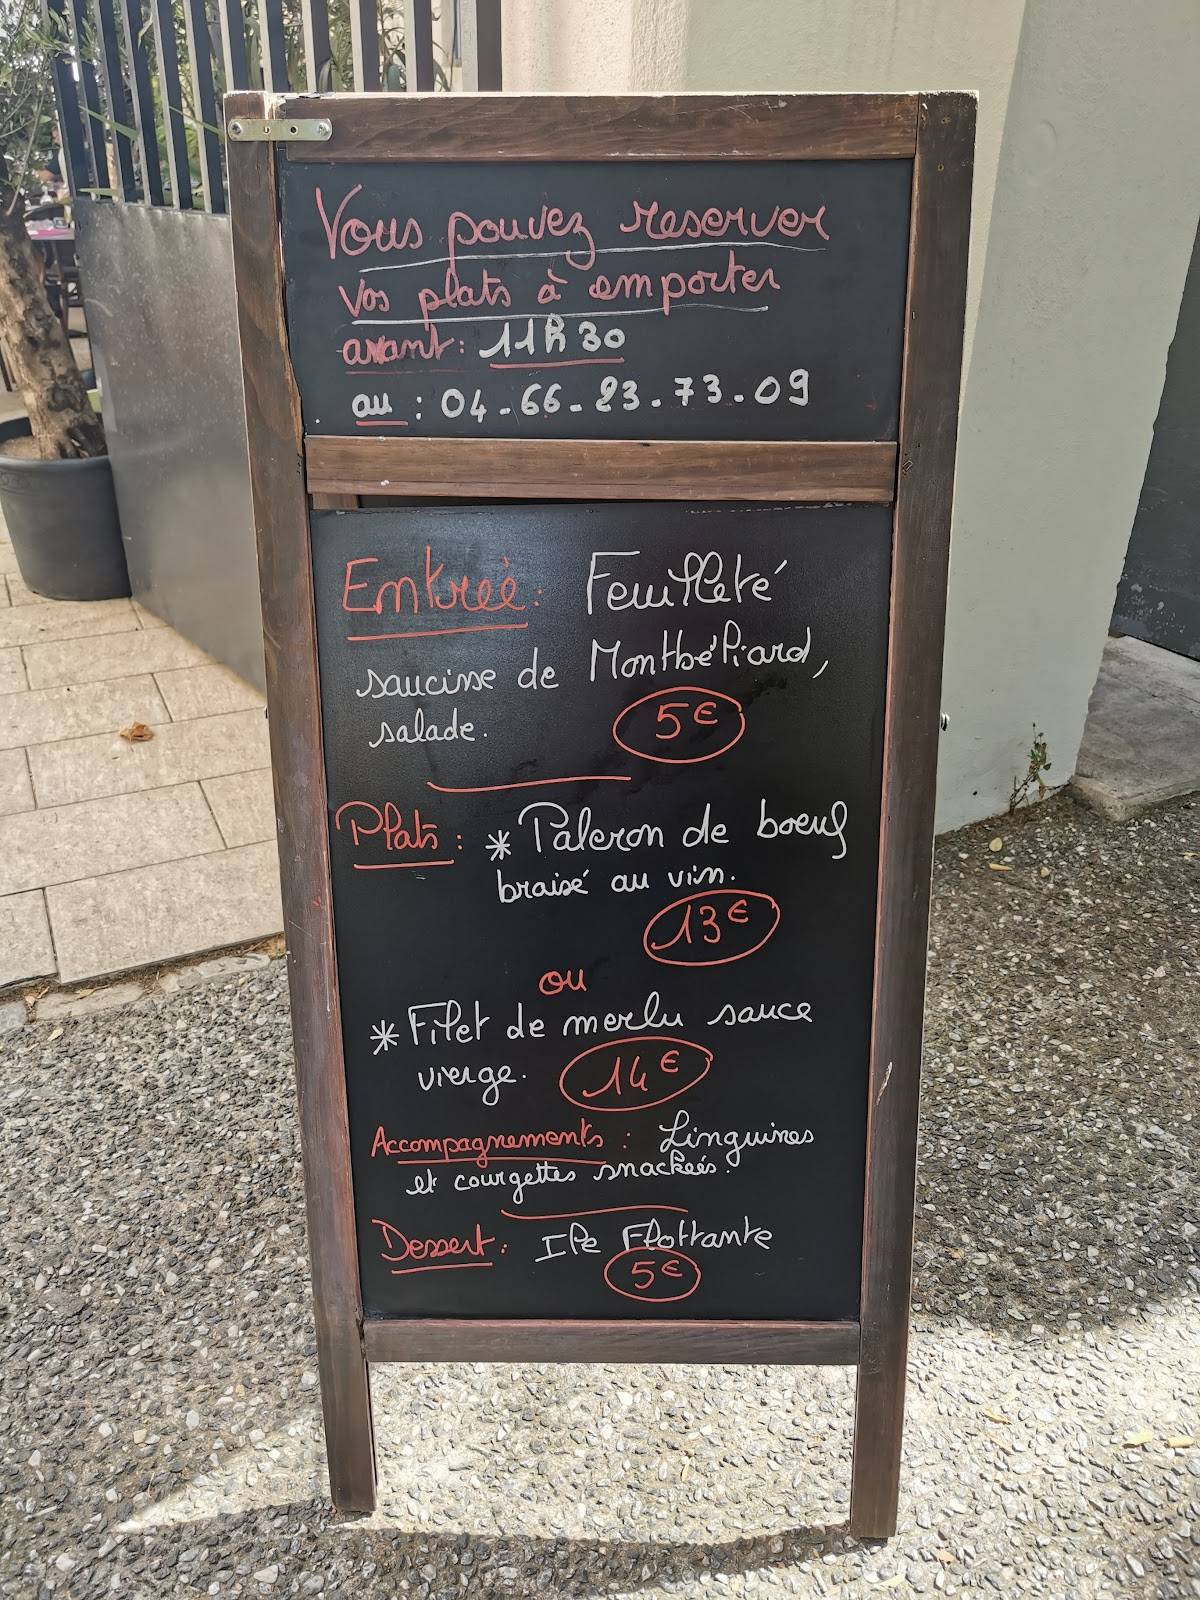 Vous pouvez reserver
vos plats à emporter
avant : 11h30
au : 04.66.23.73.09
Entrée : Feuilleté
saucisse de Montbéliard,
salade. 5€
Plats : * Paleron de boeuf
braisé au vin.
13€
ou
* Filet de merlu sauce
vierge. 14€
Accompagnements : Linguines
et courgettes snackées.
Dessert : Ile Flottante
5€